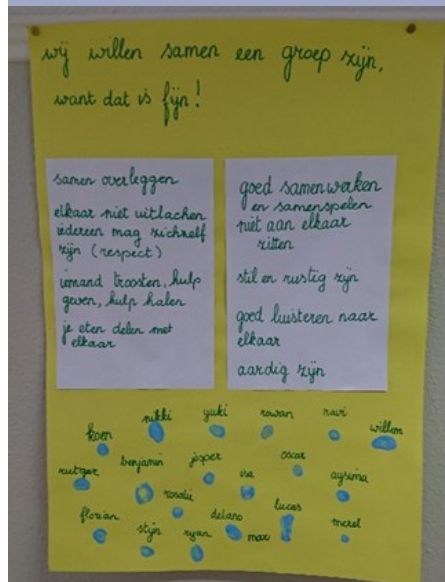 wij willen samen een groep zijn,
want dat is fijn!
samen overleggen
elkaar niet uitlachen
iedereen mag zichzelf
zijn (respect)
iemand troosten, hulp
geven, hulp halen
je eten delen met
elkaar
goed samenwerken
en samenspelen
niet aan elkaar
zitten
stil en rustig zijn
goed luisteren naar
elkaar
aardig zijn
koen nikki yuki rowan ravi willem
rutger benjamin jesper isa oscar aysima
rosalie
florian stijn ryan delano max lucas merel